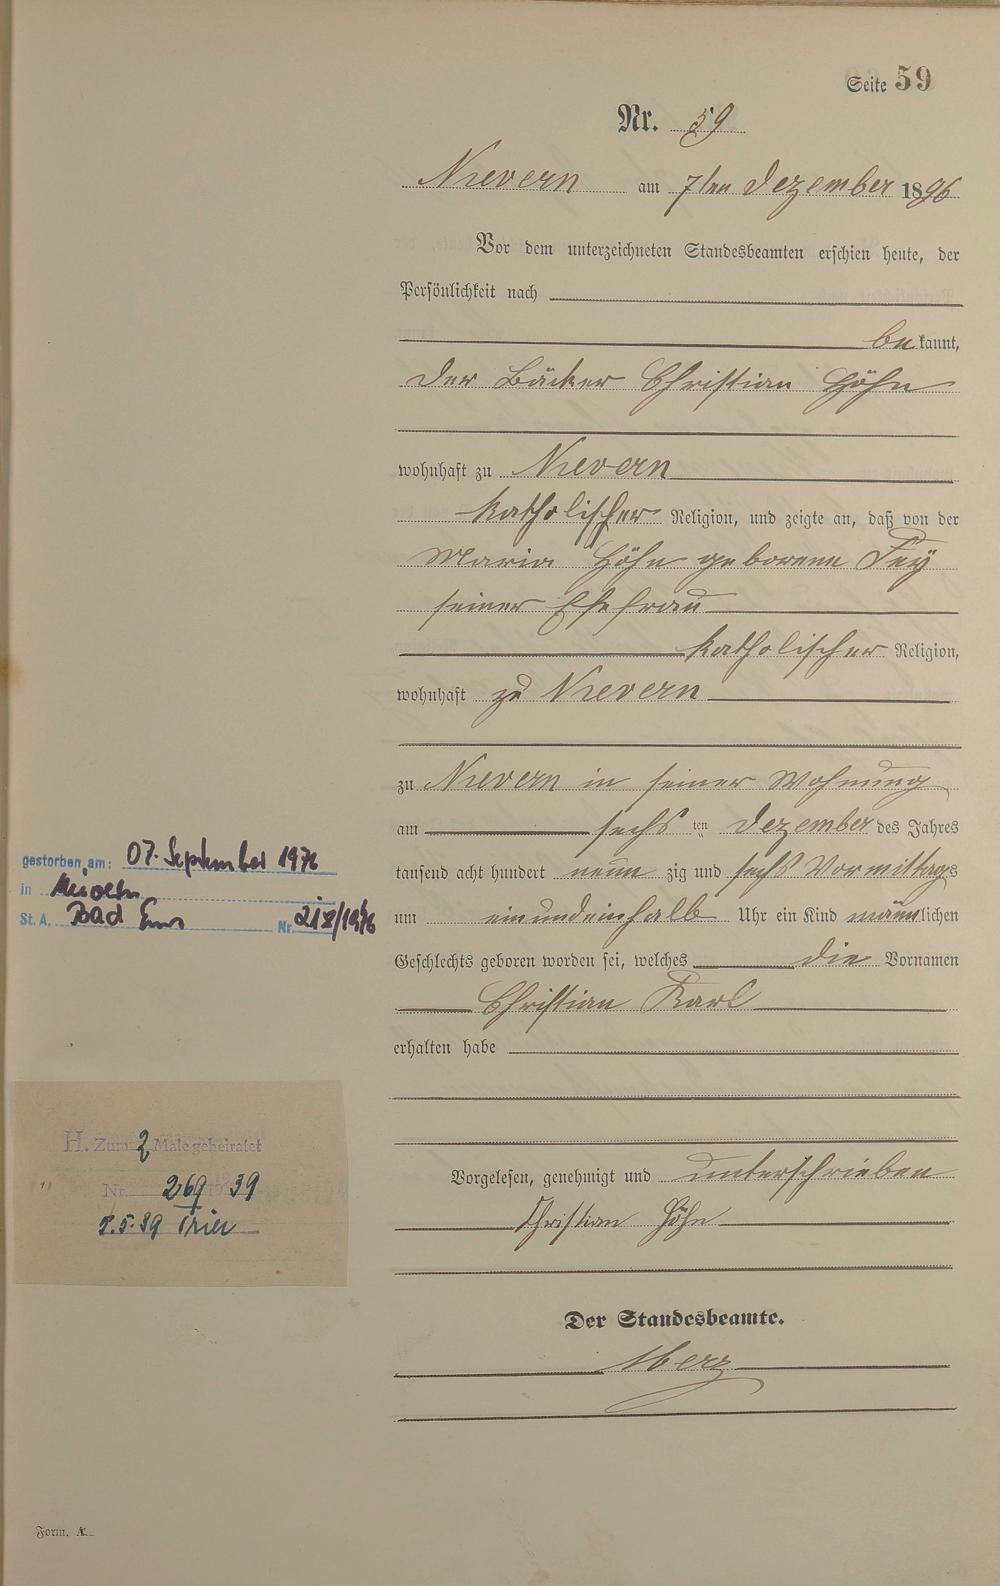 Seite 59
Nr. 59
Nievern am 7ten Dezember 1896
Vor dem unterzeichneten Standesbeamten erschien heute, der
Persönlichkeit nach
bekannt,
der Bäcker Christian Höhn
wohnhaft zu Nievern
katholischer Religion, und zeigte an, daß von der
Maria Höhn geborene Feÿ
seiner Ehefrau
katholischer Religion,
wohnhaft zu Nievern
zu Nievern in seiner Wohnung
am sechs ten Dezember des Jahres
tausend acht hundert neun zig und sechs Vormittags
um ein und ein halb Uhr ein Kind männlichen
Geschlechts geboren worden sei, welches die Vornamen
Christian Karl
erhalten habe
Vorgelesen, genehmigt und unterschrieben
Christian Höhn
Der Standesbeamte.
gestorben am: 07. September 1976
in
St. A. Bad Ems Nr.
H. Zum 2 Male geheiratet
Nr. 269 39
5.39 Trier
Form. A.